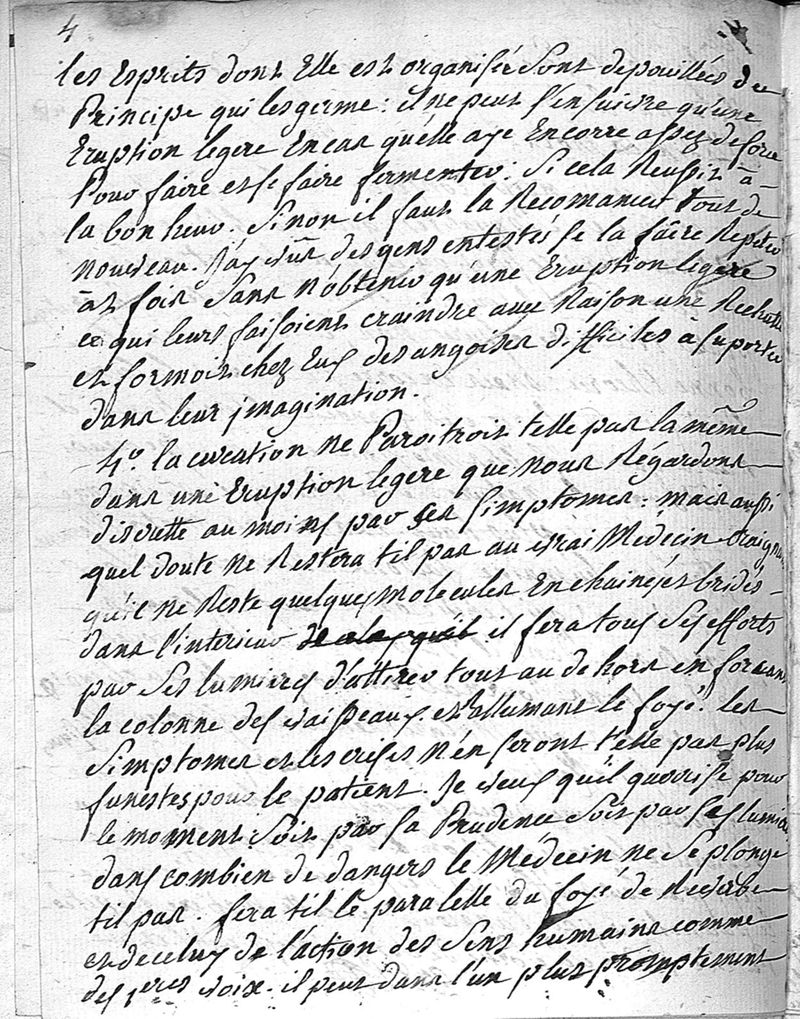 4
les Esprits dont Elle est organisée sont depouillées de
Principe qui les germe: il ne peut s'ensuivre qu'une
Eruption legere En cas qu'elle aye Encorre assez de force
Pour faire et se faire fermenter. Si cela Reussit à
la bon heur. Sinon il faut la Recomancer tout de
nouveau. J'ay vûs des gens entestés se la faire Repeter
sans n'obtenir qu'une Eruption legere
ce qui leurs faisoient craindre aux Raison une Rechutte
et formoit chez Eux des angoises difficiles à suporter
dans leur jmagination.
4º. la curation ne Paroitroit telle pas la même
dans une Eruption legere que nous Régardons
discrette au moins par ses simptomes: mais aussi
quel doute ne Restera til pas au vrai Medecin craignant
qu'il ne Reste quelques molecules Enchainées et bridés
dans l'interieur il fera tous ses efforts
par ses lumieres d'attirer tout au dehors en forcant
la colonne des vaisseaux. et allumant le foyé. les
Simptomes et les crises n'en seront t'elle pas plus
funestes pour le patient. Je veux qu'il guorisse pour
le moment soit par sa Prudence soit par ses lumieres
dans combien de dangers le Médecin ne se plonge
til pas. fera til le paralelle du foyé de
et de celuy de l'action des sens humains comme
des 1eres voix. il peut dans l'un plus promptement